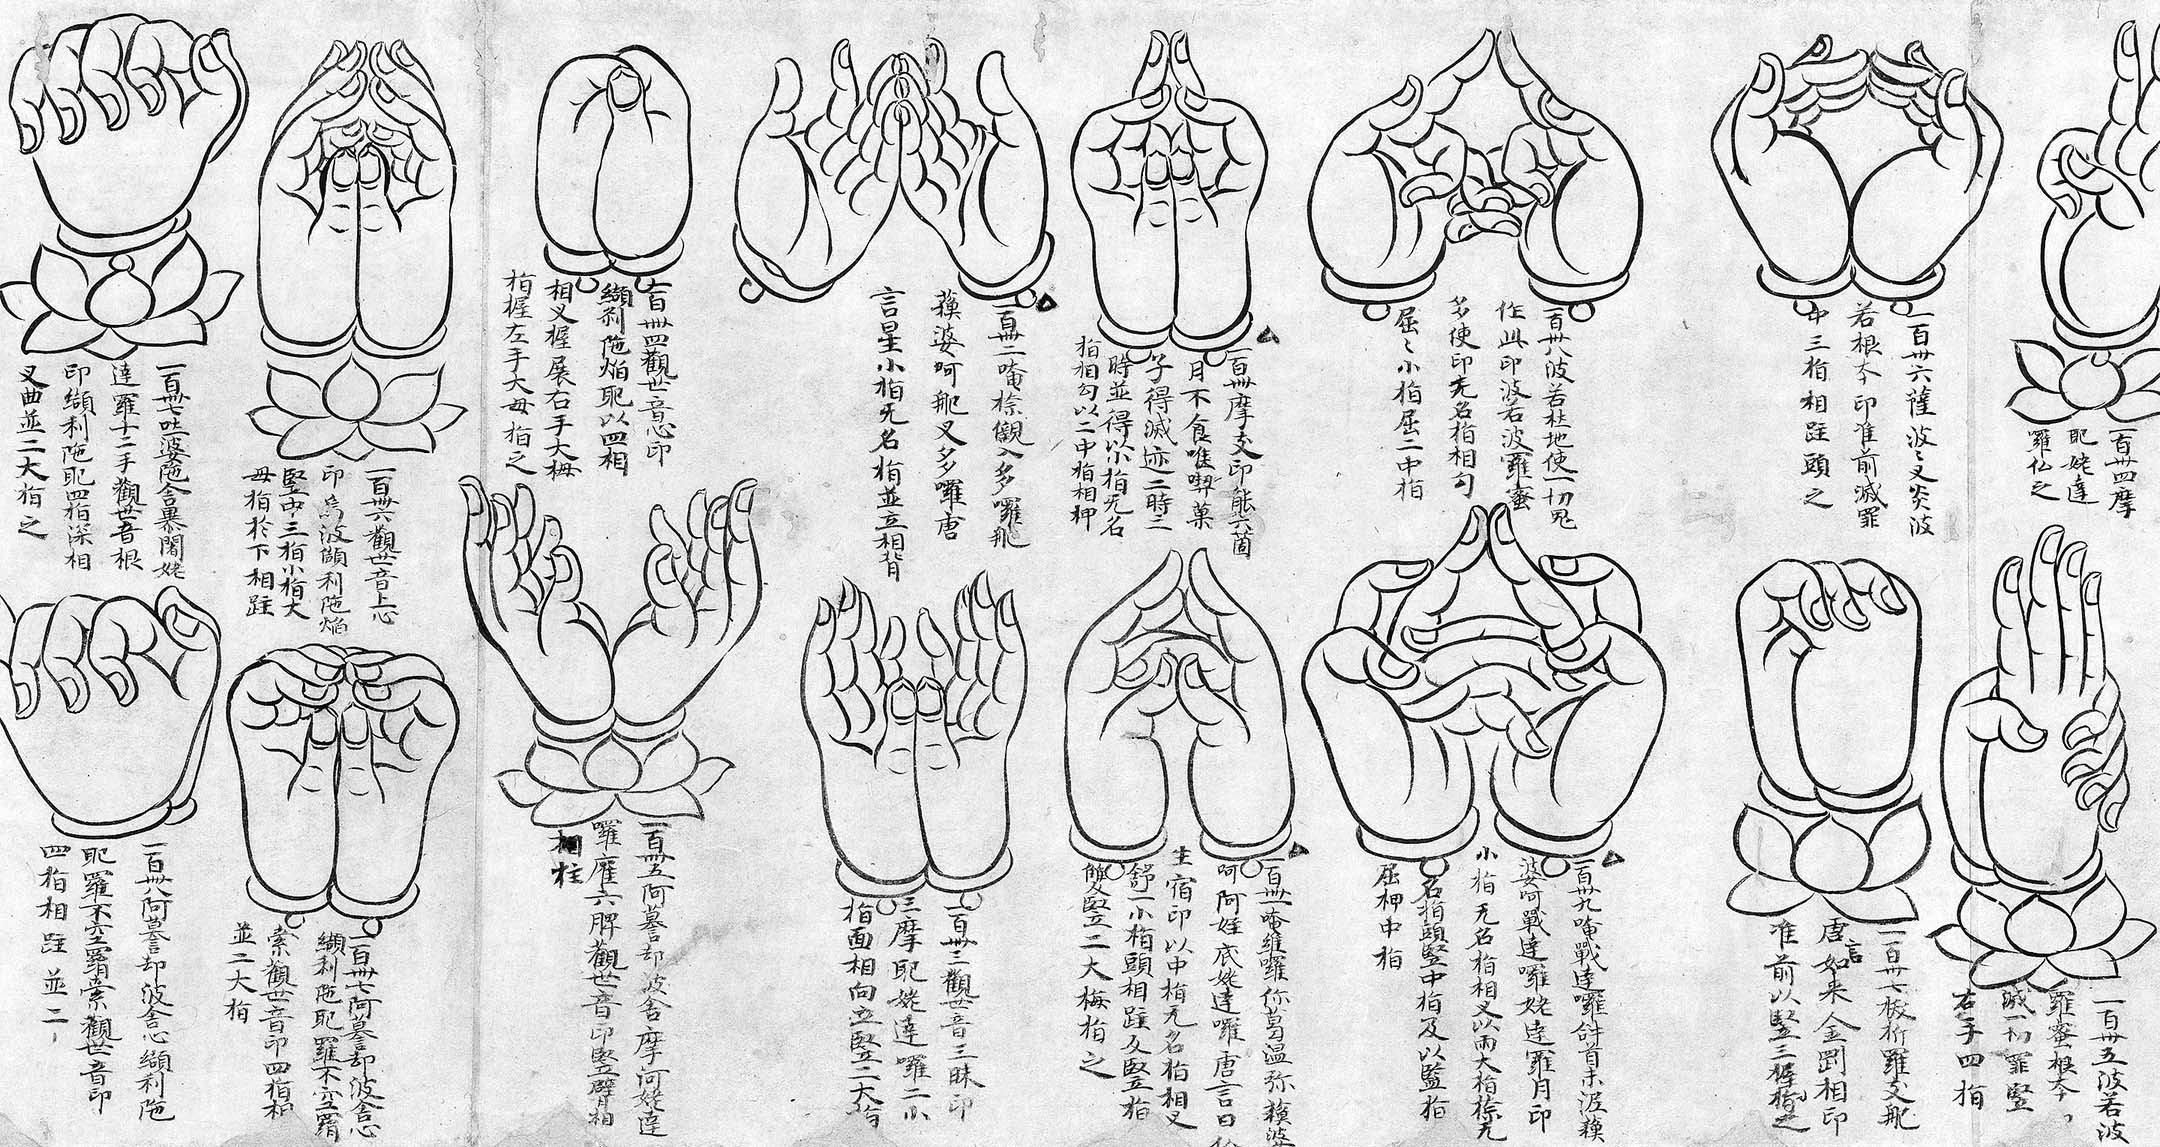 一百卅四摩
耶姥達
羅仏之
一百卅六薩波〻叉炎波
若根本印准前滅罪
中三指相跓頭之
一百卅八波若柱地使一切鬼
作此印波若波羅蜜
多使印无名指相勾
屈〻小指屈二中指
一百卌摩支印能六箇
月不食唯喫菓
子得滅迹二時三
時並得以小指无名
指相勾以二中指相押
一百卌二唵㮈儭入多囉
蘓婆呵 叉多囉唐
言星小指无名指並立相背
一百卌四觀世音心印
纈利陁焔耶以四相
相叉握展右手大母
指握左手大母指之
一百卌六觀世音上心
印烏波 利陁焔
竪中三指小指大
母指於下相跓
一百卌七吐婆陁舍暴闍姥
達羅十二手觀世音根
印纈利陁耶四指深相
叉曲並二大指之
一百卅五波若波
羅蜜根本〻
滅一切罪竪
右手四指
一百卅七 折羅交
唐言如来金剛相印
准前以竪三握指之
一百卅九唵戰達羅 首未泥蘓
婆呵戰達囉姥達羅月印
小指无名指相叉以兩大指捺无
名指頭竪中指及以監指
屈押中指
一百卌一唵維囉你葛温弥蘓婆
呵阿姪底姥達囉唐言日
生宿印以中指无名指相叉
舒一小指頭相跓及竪指
竪二大母指之
一百卌三觀世音三昧印
三摩耶姥達羅二小
指面相向立竪二大指
一百卌五阿暮却波舍摩訶姥達
囉 六 觀世音印竪臂相
相柱
一百卌七阿暮却波舍心
纈利陁耶羅不空羂
索觀世音印四指相
並二大指
一百卌八阿暮却波舍心纈利陁
耶羅不空羂索觀世音印
四指相跓並二〻